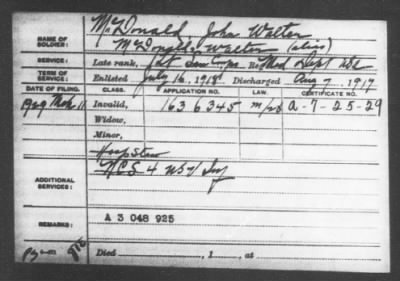 NAME OF SOLDIER: McDonald John Walter
McDonald, Walter (alias)
SERVICE: Late rank, Regt Med Dept USA
TERM OF SERVICE: Enlisted July 16, 1918 Discharged Aug 7, 1919
DATE OF FILING. CLASS. APPLICATION NO. LAW. CERTIFICATE NO.
1929 Mch 11 Invalid, 1636345 A-7-25-29
Widow,
Minor,
ADDITIONAL SERVICES: 4 US Inf
REMARKS: A 3 048 925
Died , 1 , at